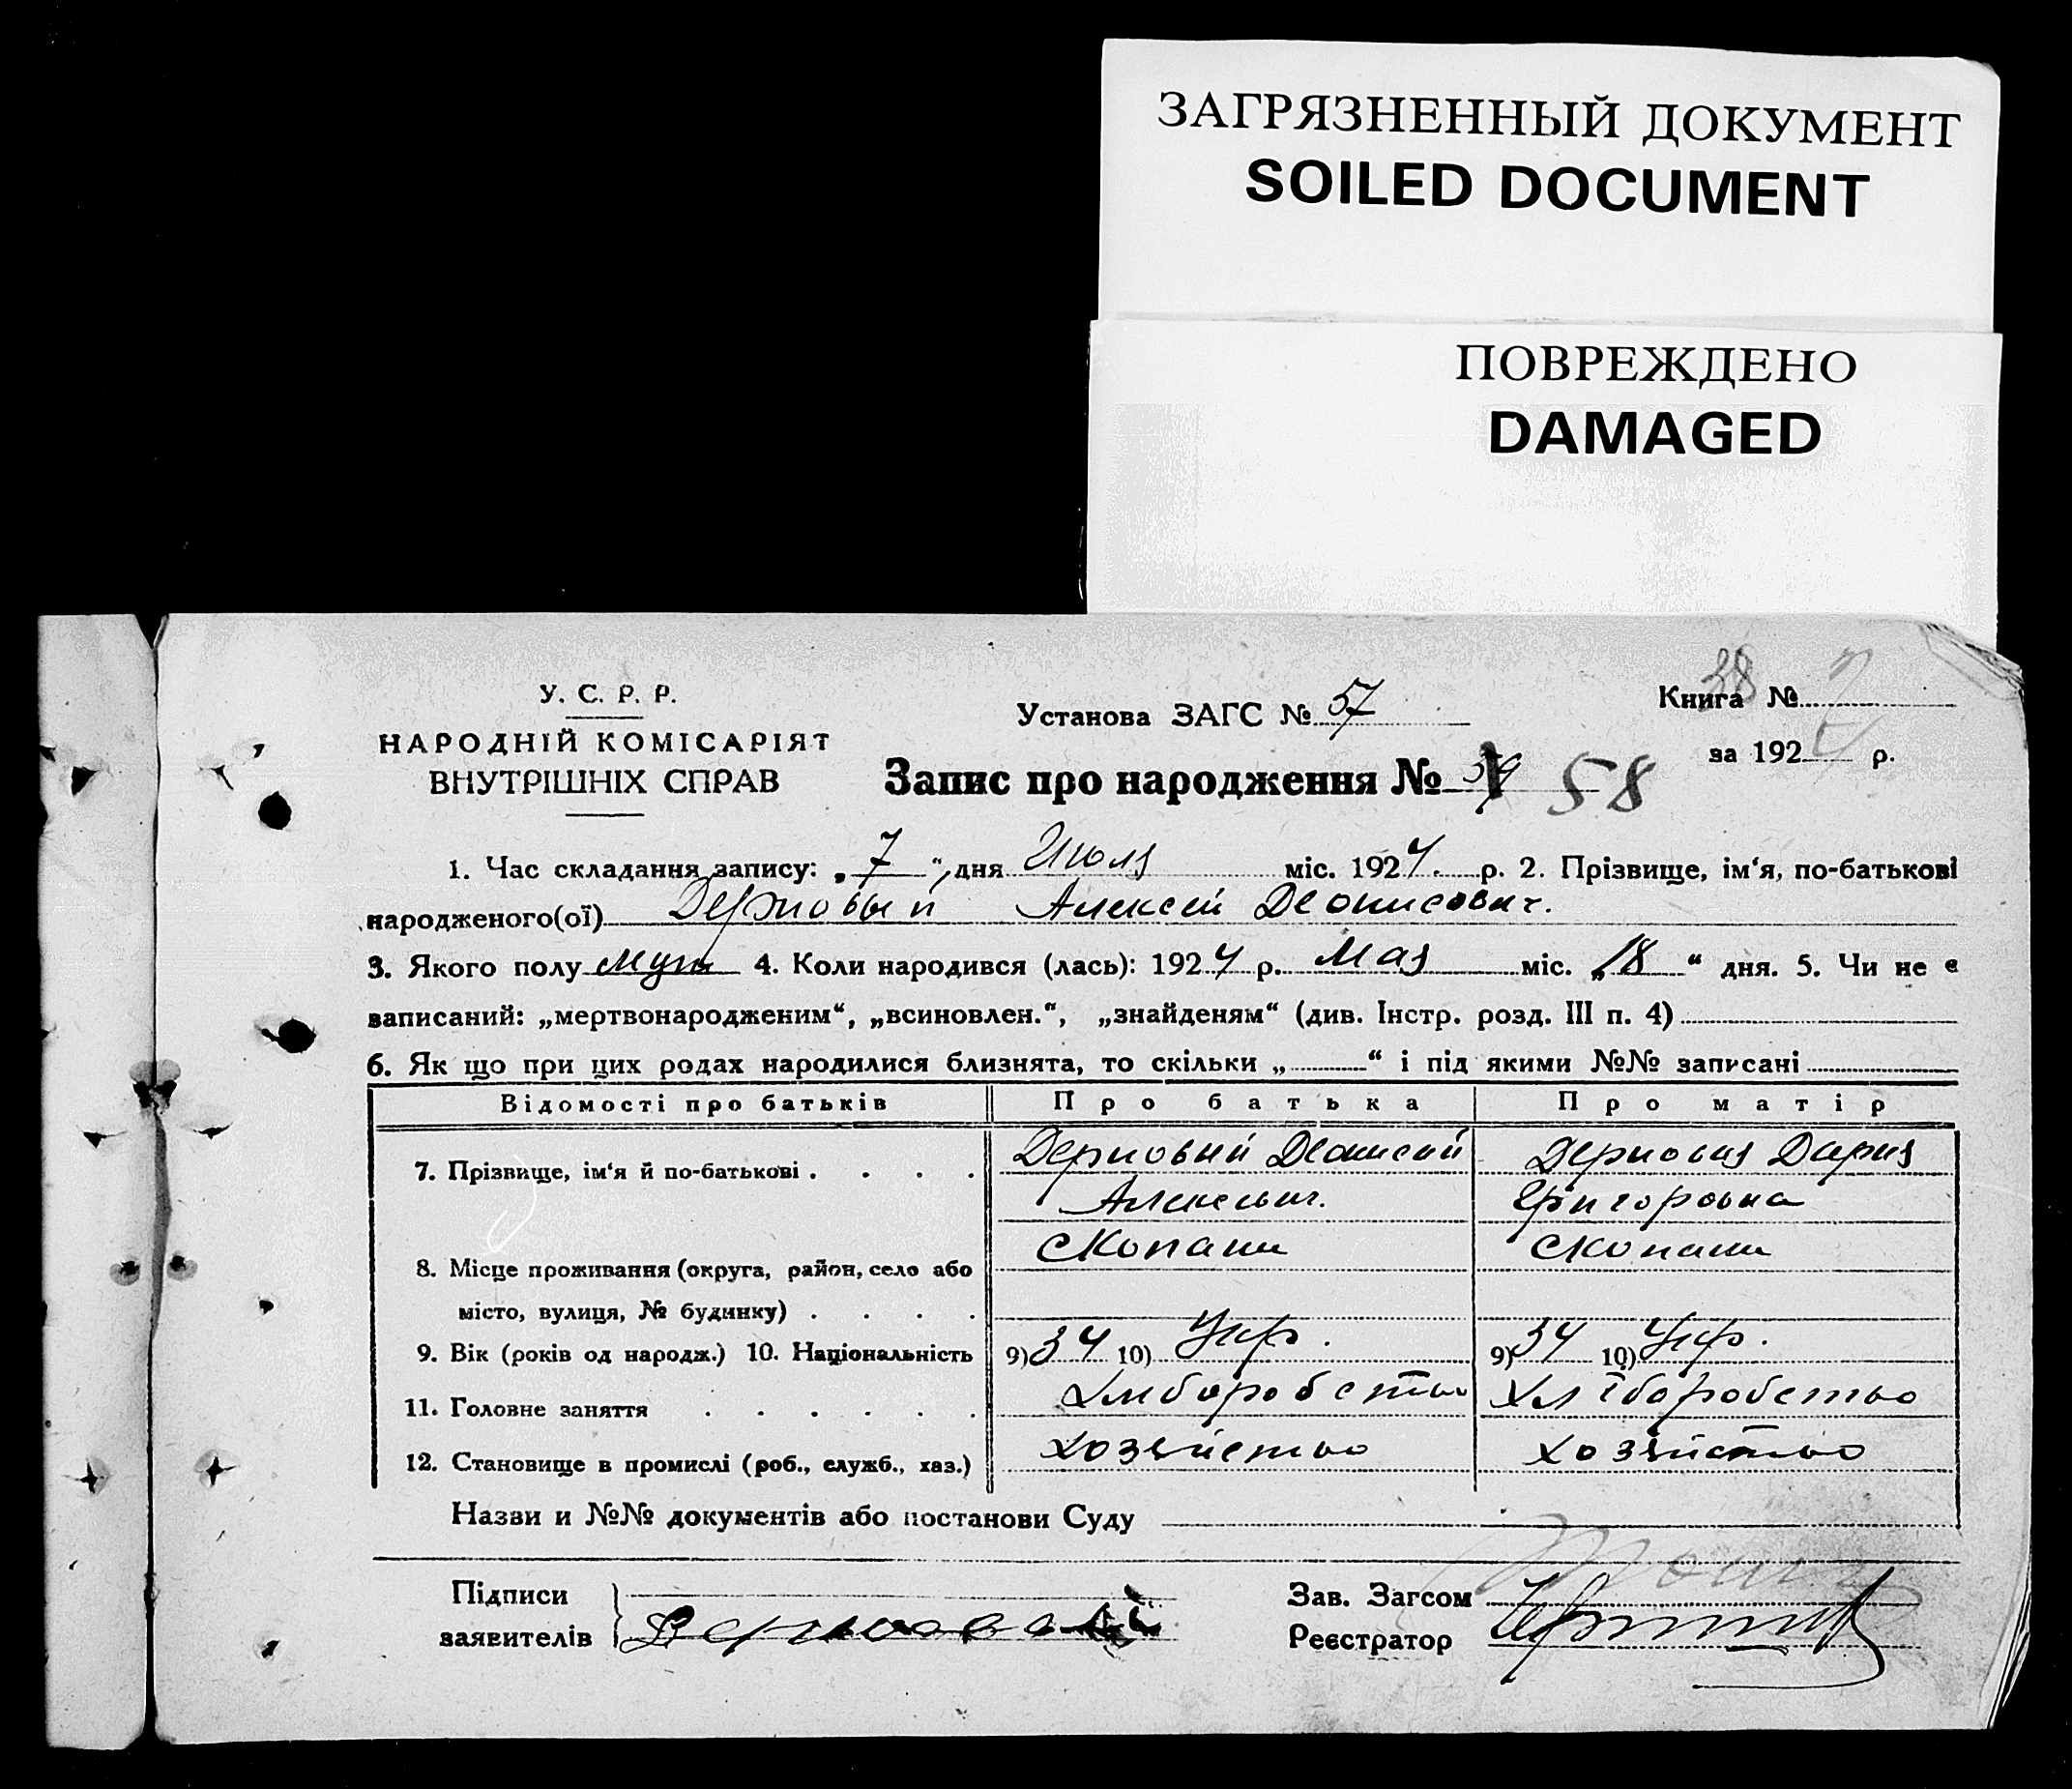 ЗАГРЯЗНЕННЫЙ ДОКУМЕНТ
SOILED DOCUMENT
ПОВРЕЖДЕНО
DAMAGED
38
У. С. Р. Р.
НАРОДНІЙ КОМІСАРІЯТ
ВНУТРІШНІХ СПРАВ
Установа ЗАГС № 57
Книга №
за 192 р.
Запис про народження № 58
1. Час складання запису: „7“ дня Июля міс. 1924 р. 2. Прізвище, ім‘я, по-батькові
народженого(ої) Дерновый Алексей Деонисович.
3. Якого полу муж 4. Коли народився (лась): 1924 р. Мая міс. „18“ дня. 5. Чи не є
записаний: „мертвонародженим“, „всиновлен.“, „знайденям“ (див. Інстр. розд. III п. 4)
6. Як що при цих родах народилися близнята, то скільки „ “ і під якими №№ записані
Відомості про батьків Про батька Про матір
7. Прізвище, ім‘я й по-батькові . . . . Дерновий Деонисий Дерновая Дария
Алексеевич. Григоровна
Скопани Скопани
8. Місце проживання (округа, район, село або
місто, вулиця, № будинку) . . . .
9. Вік (років од народж.) 10. Національність 9) 34 10) Укр. 9) 34 10) Укр.
11. Головне заняття . . . . . . Хлиборобство Хліборобство
12. Становище в промислі (роб., служб., хаз.) хозяйство хозяйство
Назви и №№ документів або постанови Суду
Підписи
заявителів Дерновый
Зав. Загсом
Реєстратор